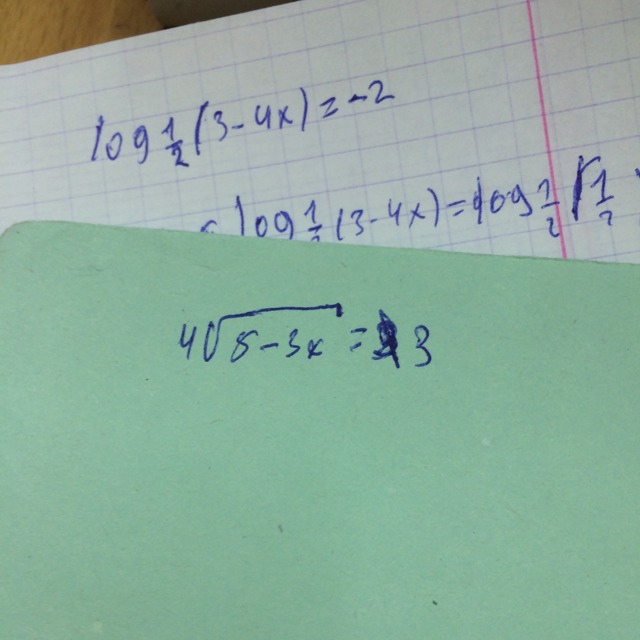 log 1/2 (3-4x) = -2
log 1/2 (3-4x) = log 1/2 (1/2
4√8-3x = 3